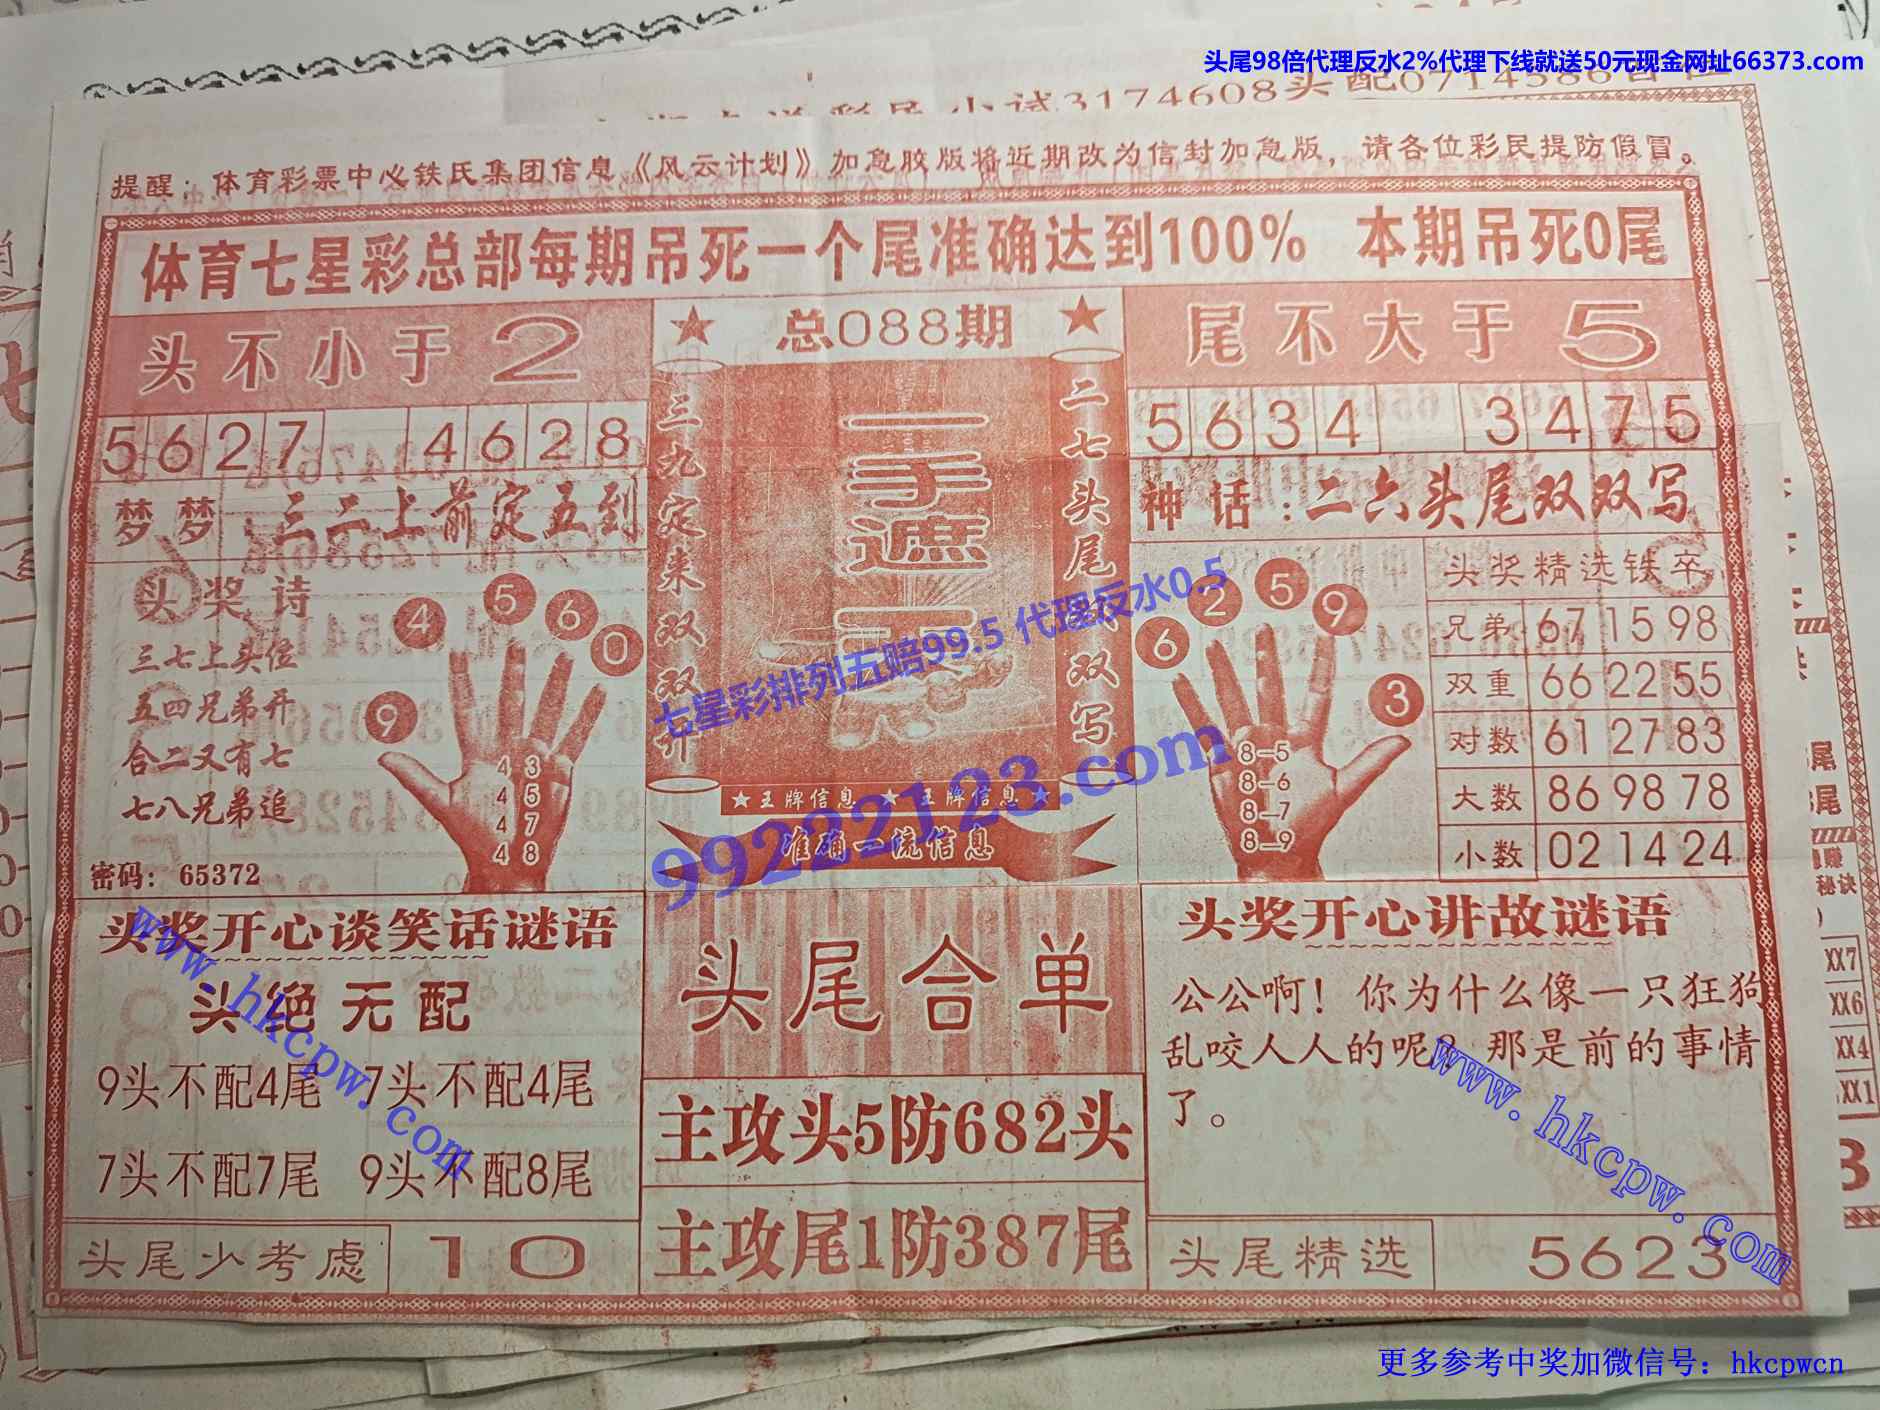 头尾98倍代理反水2%代理下线就送50元现金网址66373.com
提醒：体育彩票中心铁氏集团信息《风云计划》加急胶版将近期改为信封加急版，请各位彩民提防假冒。
体育七星彩总部每期吊死一个尾准确达到100% 本期吊死0尾
头不小于2
5627 4628
梦梦：三二上前定五到
头奖诗
三七上头位
五四兄弟开
合二又有七
七八兄弟追
密码：65372
9 4 5 6 0
4 3
4 5
4 7
4 8
总088期
三九定来双双开
一手遮天
二七头尾双双写
★王牌信息 ★王牌信息★
准确一流信息
尾不大于5
5634 3475
神话：二六头尾双双写
6 2 5 9 3
8-5
8-6
8-7
8-9
头奖精选铁卒
兄弟 67 15 98
双重 66 22 55
对数 61 27 83
大数 86 98 78
小数 02 14 24
七星彩排列五赔99.5 代理反水0.5
99222123.com
头奖开心谈笑话谜语
头绝无配
9头不配4尾 7头不配4尾
7头不配7尾 9头不配8尾
头尾少考虑 10
www.hkcpw.com
头尾合单
主攻头5防682头
主攻尾1防387尾
头奖开心讲故谜语
公公啊！你为什么像一只狂狗
乱咬人人的呢？那是前的事情
了。
头尾精选 5623
www.hkcpw.com
XX7
XX6
XX4
XX1
更多参考中奖加微信号：hkcpwcn